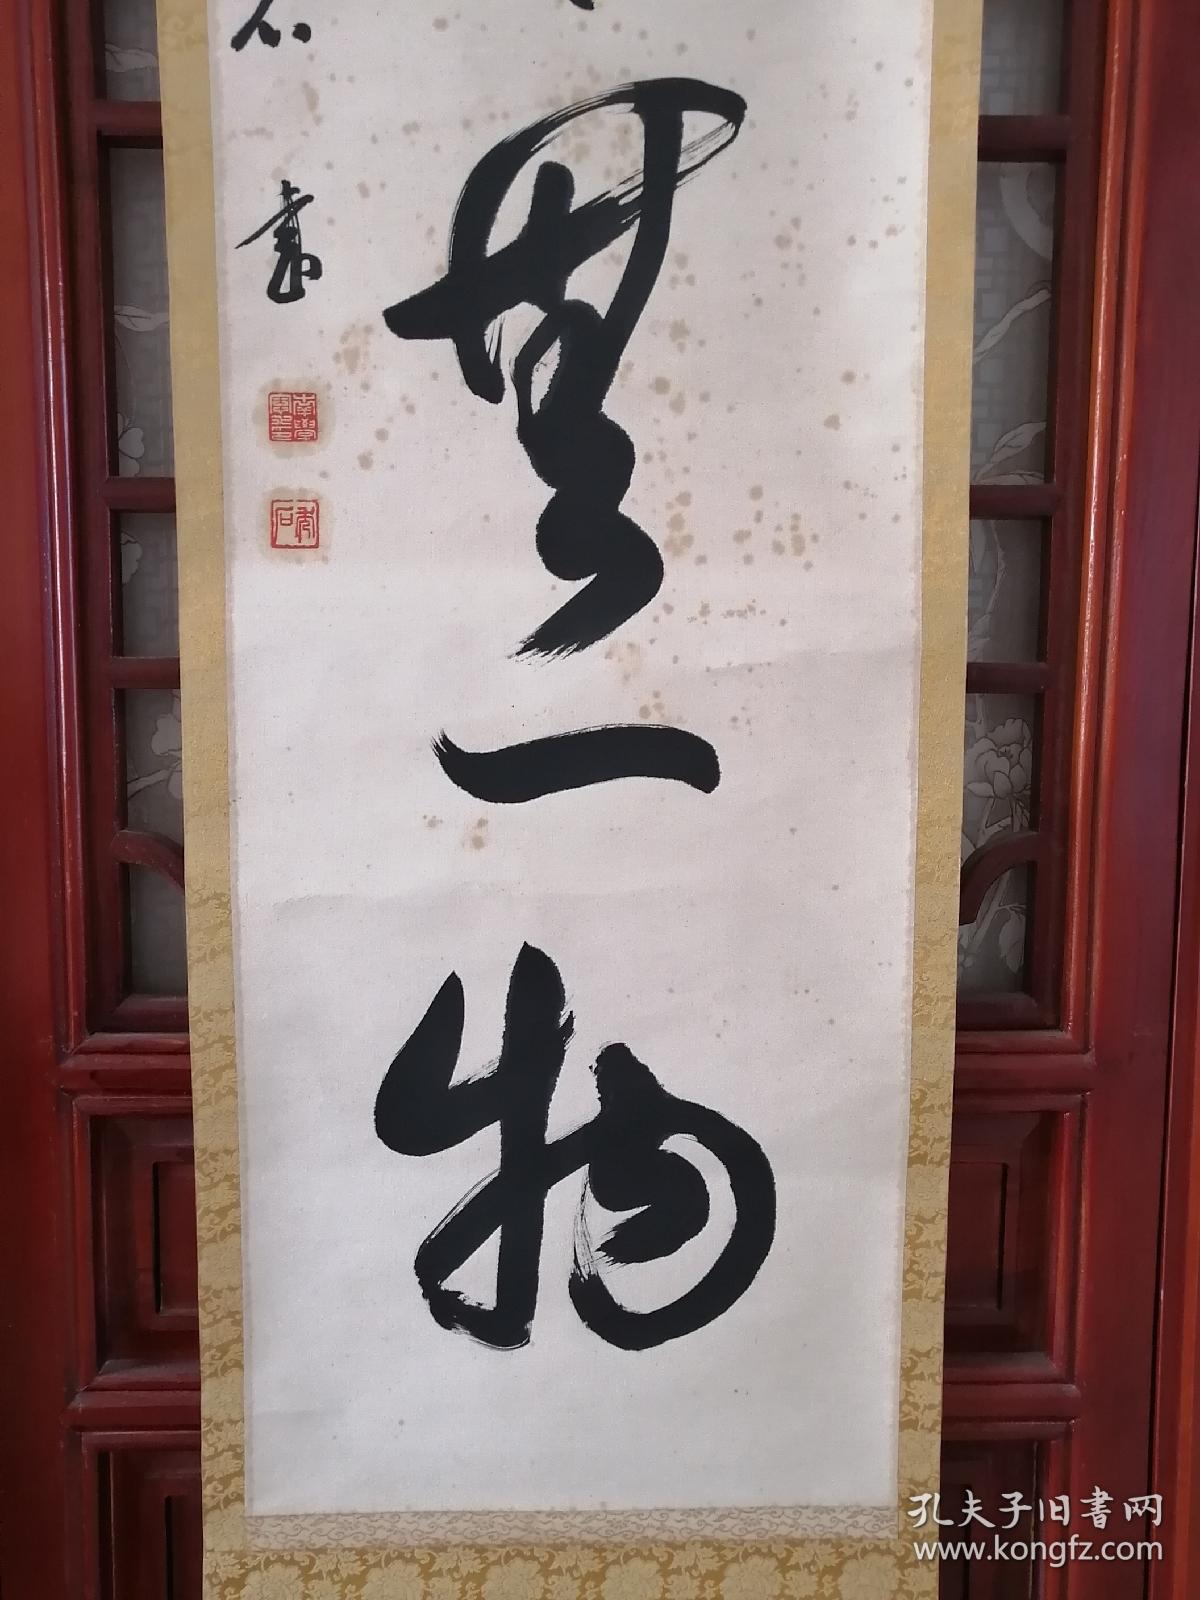 無一物
石
書
孔夫子旧書网
www.kongfz.com